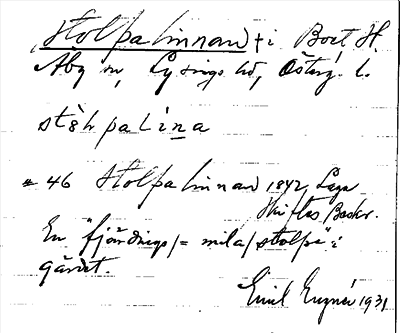 Stolpalinnan ti Boet H.
Åby sn, Lysings hd, Östergl. l.
stòḷpalina
46 Stolpalinnan 1842, Laga
Skiftes Beskr.
En "fjärdings/= mila/stolpe" i
gärdet.
Emil 1931